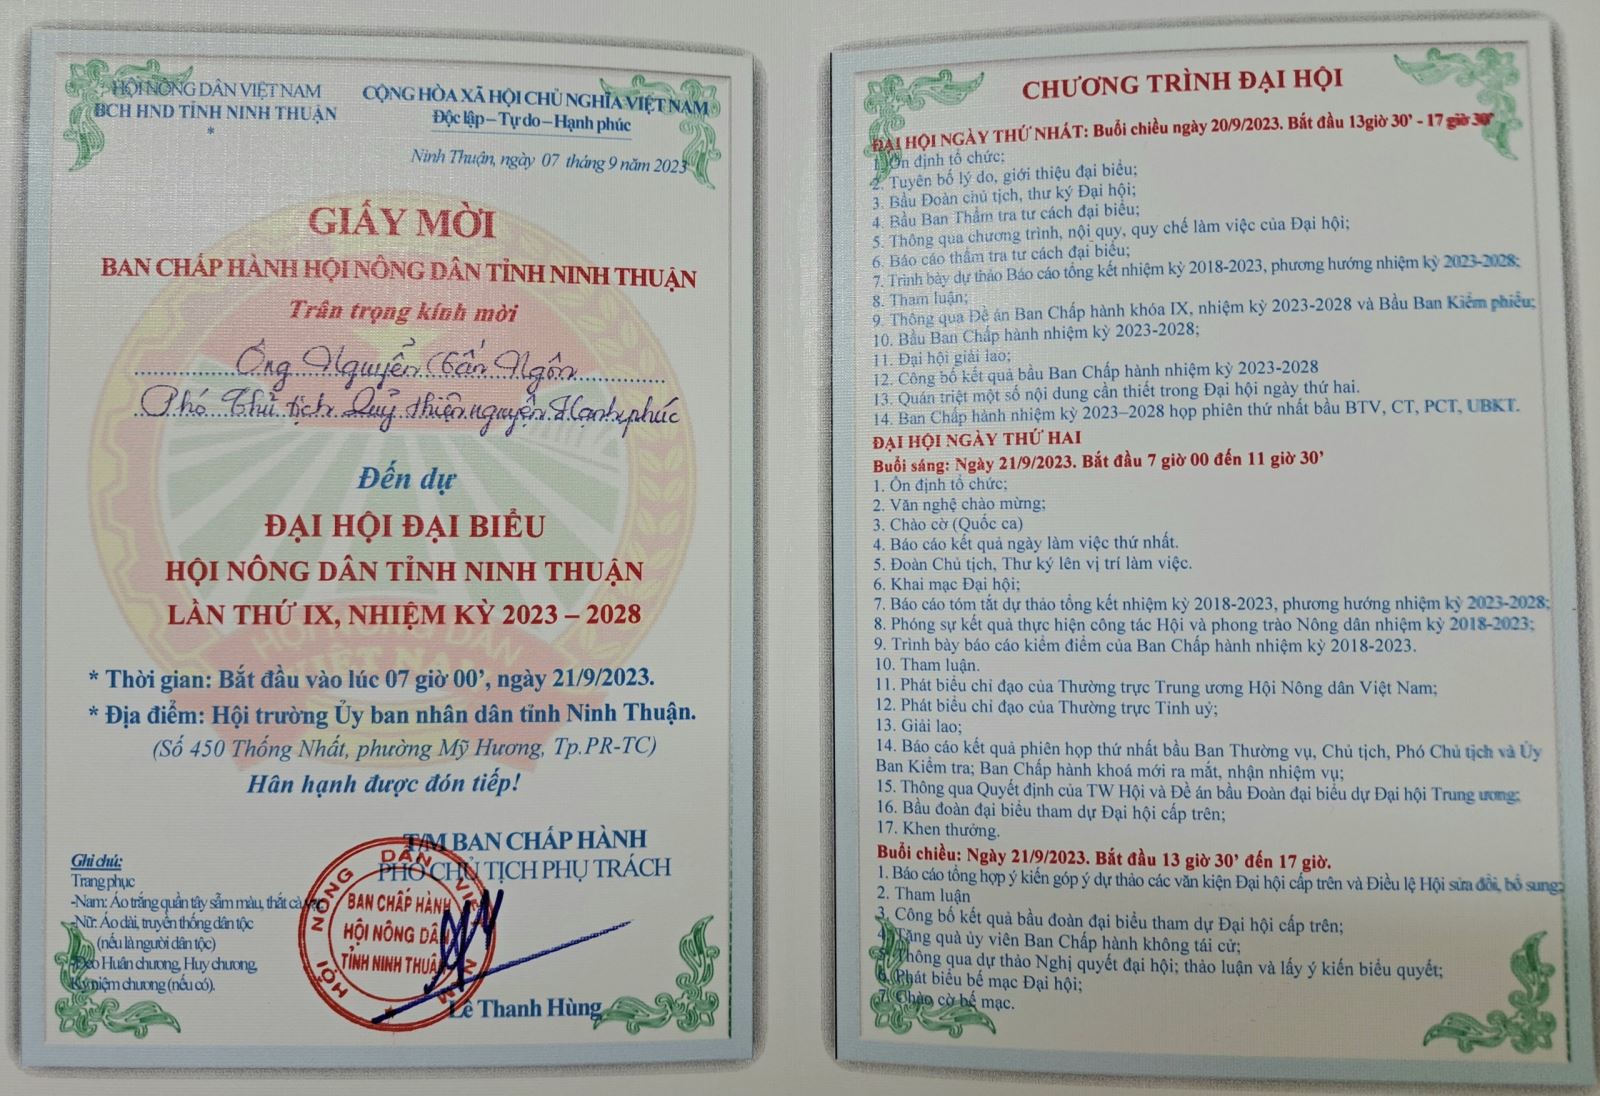 HỘI NÔNG DÂN VIỆT NAM
BCH HND TỈNH NINH THUẬN
*
CỘNG HÒA XÃ HỘI CHỦ NGHĨA VIỆT NAM
Độc lập – Tự do – Hạnh phúc
Ninh Thuận, ngày 07 tháng 9 năm 2023
GIẤY MỜI
BAN CHẤP HÀNH HỘI NÔNG DÂN TỈNH NINH THUẬN
Trân trọng kính mời
Ông Nguyễn Tấn Ngôn
Phó Chủ tịch Quỹ thiện nguyện Hạnh phúc
Đến dự
ĐẠI HỘI ĐẠI BIỂU
HỘI NÔNG DÂN TỈNH NINH THUẬN
LẦN THỨ IX, NHIỆM KỲ 2023 – 2028
HỘI NÔNG DÂN
VIỆT NAM
* Thời gian: Bắt đầu vào lúc 07 giờ 00’, ngày 21/9/2023.
* Địa điểm: Hội trường Ủy ban nhân dân tỉnh Ninh Thuận.
(Số 450 Thống Nhất, phường Mỹ Hương, Tp.PR-TC)
Hân hạnh được đón tiếp!
T/M BAN CHẤP HÀNH
PHÓ CHỦ TỊCH PHỤ TRÁCH
HỘI NÔNG DÂN VIỆT NAM
BAN CHẤP HÀNH
HỘI NÔNG DÂN
TỈNH NINH THUẬN
Lê Thanh Hùng
Ghi chú:
Trang phục
-Nam: Áo trắng quần tây sẫm màu, thắt cà vạt
-Nữ: Áo dài, truyền thống dân tộc
(nếu là người dân tộc)
-Đeo Huân chương, Huy chương,
Kỷ niệm chương (nếu có).
CHƯƠNG TRÌNH ĐẠI HỘI
ĐẠI HỘI NGÀY THỨ NHẤT: Buổi chiều ngày 20/9/2023. Bắt đầu 13giờ 30’ - 17 giờ 30’
1. Ổn định tổ chức;
2. Tuyên bố lý do, giới thiệu đại biểu;
3. Bầu Đoàn chủ tịch, thư ký Đại hội;
4. Bầu Ban Thẩm tra tư cách đại biểu;
5. Thông qua chương trình, nội quy, quy chế làm việc của Đại hội;
6. Báo cáo thẩm tra tư cách đại biểu;
7. Trình bày dự thảo Báo cáo tổng kết nhiệm kỳ 2018-2023, phương hướng nhiệm kỳ 2023-2028;
8. Tham luận;
9. Thông qua Đề án Ban Chấp hành khóa IX, nhiệm kỳ 2023-2028 và Bầu Ban Kiểm phiếu;
10. Bầu Ban Chấp hành nhiệm kỳ 2023-2028;
11. Đại hội giải lao;
12. Công bố kết quả bầu Ban Chấp hành nhiệm kỳ 2023-2028
13. Quán triệt một số nội dung cần thiết trong Đại hội ngày thứ hai.
14. Ban Chấp hành nhiệm kỳ 2023–2028 họp phiên thứ nhất bầu BTV, CT, PCT, UBKT.
ĐẠI HỘI NGÀY THỨ HAI
Buổi sáng: Ngày 21/9/2023. Bắt đầu 7 giờ 00 đến 11 giờ 30’
1. Ổn định tổ chức;
2. Văn nghệ chào mừng;
3. Chào cờ (Quốc ca)
4. Báo cáo kết quả ngày làm việc thứ nhất.
5. Đoàn Chủ tịch, Thư ký lên vị trí làm việc.
6. Khai mạc Đại hội;
7. Báo cáo tóm tắt dự thảo tổng kết nhiệm kỳ 2018-2023, phương hướng nhiệm kỳ 2023-2028;
8. Phóng sự kết quả thực hiện công tác Hội và phong trào Nông dân nhiệm kỳ 2018-2023;
9. Trình bày báo cáo kiểm điểm của Ban Chấp hành nhiệm kỳ 2018-2023.
10. Tham luận.
11. Phát biểu chỉ đạo của Thường trực Trung ương Hội Nông dân Việt Nam;
12. Phát biểu chỉ đạo của Thường trực Tỉnh uỷ;
13. Giải lao;
14. Báo cáo kết quả phiên họp thứ nhất bầu Ban Thường vụ, Chủ tịch, Phó Chủ tịch và Ủy
Ban Kiểm tra; Ban Chấp hành khoá mới ra mắt, nhận nhiệm vụ;
15. Thông qua Quyết định của TW Hội và Đề án bầu Đoàn đại biểu dự Đại hội Trung ương;
16. Bầu đoàn đại biểu tham dự Đại hội cấp trên;
17. Khen thưởng.
Buổi chiều: Ngày 21/9/2023. Bắt đầu 13 giờ 30’ đến 17 giờ.
1. Báo cáo tổng hợp ý kiến góp ý dự thảo các văn kiện Đại hội cấp trên và Điều lệ Hội sửa đổi, bổ sung;
2. Tham luận
3. Công bố kết quả bầu đoàn đại biểu tham dự Đại hội cấp trên;
4. Tặng quà ủy viên Ban Chấp hành không tái cử;
5. Thông qua dự thảo Nghị quyết đại hội; thảo luận và lấy ý kiến biểu quyết;
6. Phát biểu bế mạc Đại hội;
7. Chào cờ bế mạc.